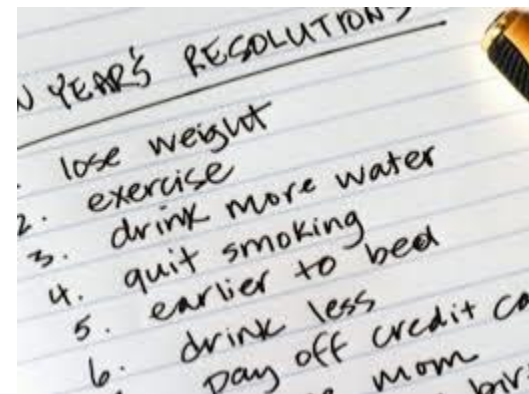 YEAR'S RESOLUTIONS
1. lose weight
2. exercise
3. drink more water
4. quit smoking
5. earlier to bed
6. drink less
pay off credit
mom